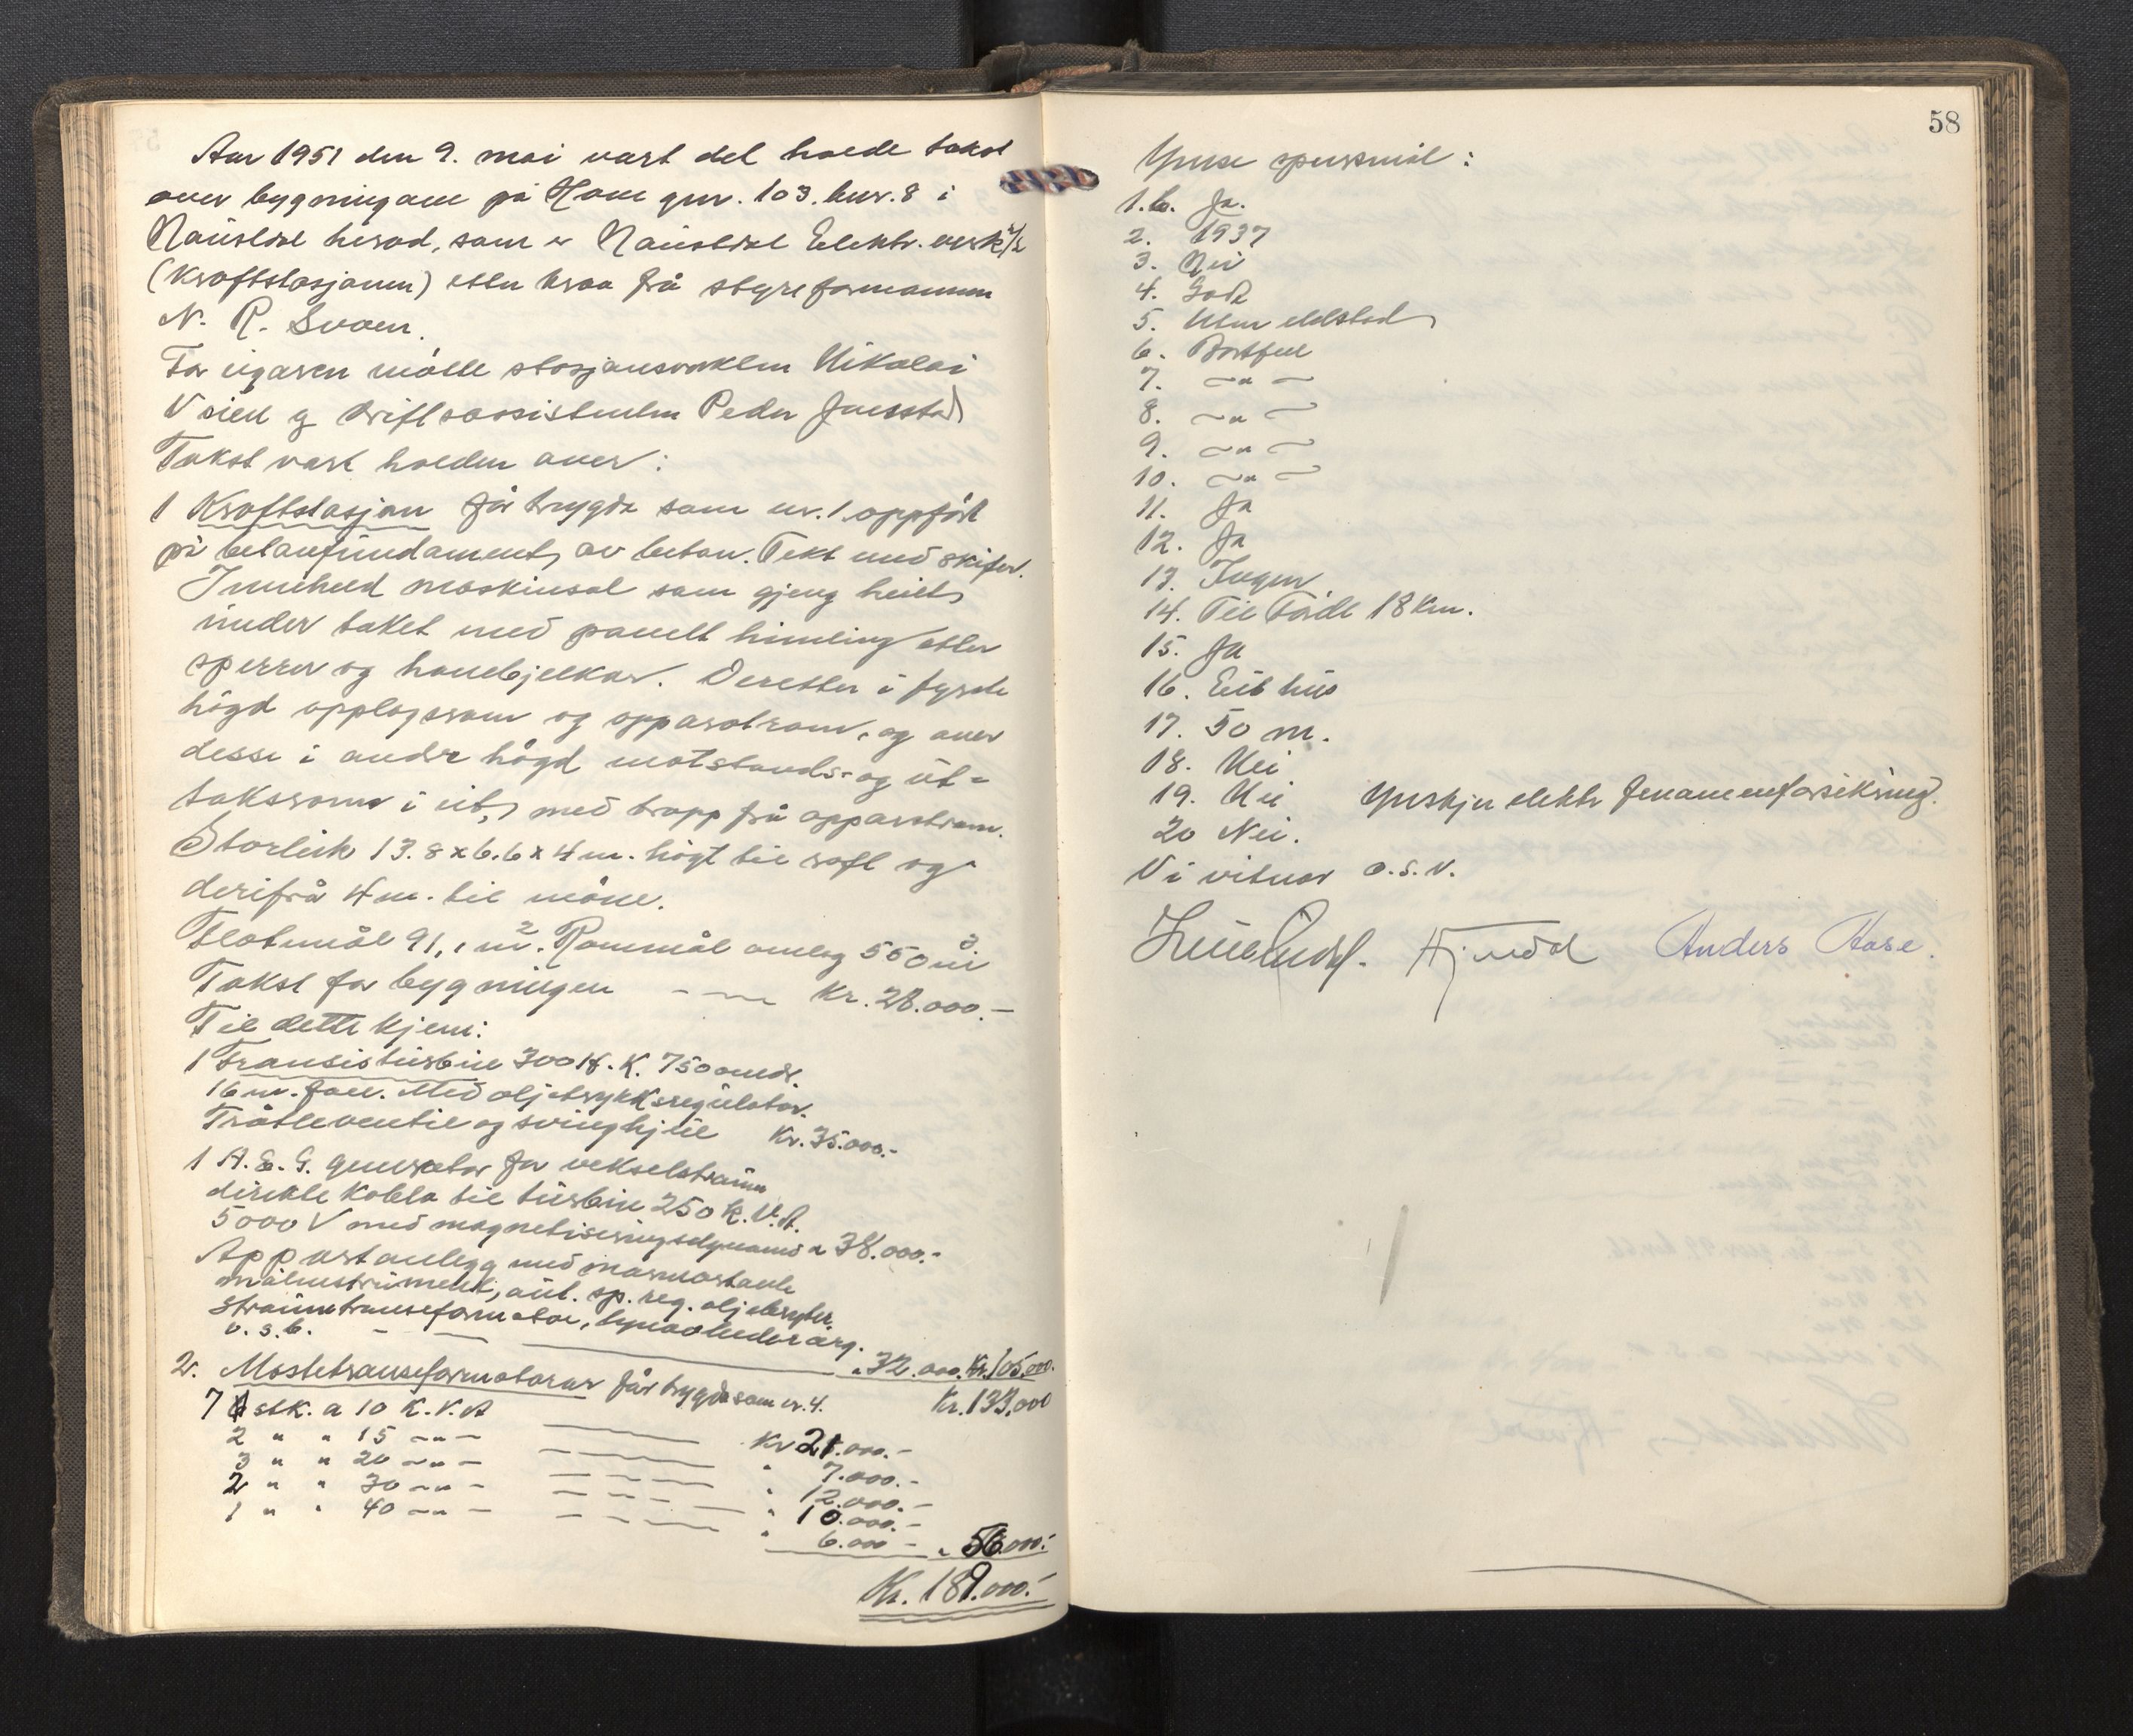 Aar 1951 den 9. mai vart det halde takst
over bygningane på Hove gnr. 103. bnr. 8 i
Naustdal herad, som er Naustdal Elektr. verk A/L
(Kraftstasjonen) etter krav frå styreformannen
N. R. Svoen.
For eigaren møtte stasjonsvakten Nikolai
Voien og driftsassistenten Peder
Takst vart halden over:
1 Kraftstasjon før trygda som nr. 1. oppført
på betonfundament, av beton. Tekt med skifer.
Inneheld maskinsal som gjeng heilt
under taket med panelt himling etter
sperrer og hanebjelkar. Deretter i fyrste
högd opplagsrom og apparatrom, og over
desse i andre högd motstands- og ut-
taksrom i eit, med trapp frå apparatrom.
Storleik 13.8 x 6.6 x 4 m. högt til raft og
derifrå 4 m. til møne.
Flatemål 91,1 m². Rommål omlag 550 m³
Takst for bygningen - — Kr. 28.000.-
Til dette kjem:
1 Fransisturbin 300 H.K. 750 omdr.
16 m. fall. Med oljetrykksregulator.
Tråtleventil og svinghjul Kr. 35.000.-
1 A.E.G. generator for vekselstraum
direkte kobla til turbin 250 K.V.A.
5000 V med magnetiseringsdynamo " 38.000.-
Apparatanlegg med marmortavle
målinstrument, aut. sp. reg. oljebryter,
straumtransformator, lynavleder arg.
o.s.b. - — " 32.000. Kr. 105.000.
Kr. 133.000
2. Mastetransformatorar før trygda som nr. 4.
7 stk. a 10 K.V.A — Kr 21.000.-
2 " " 15 -"- — " 7.000.-
3 " " 20 -"- — " 12.000.-
2 " " 30 -"- — " 10.000.-
1 " " 40 -"- — " 6.000 - " 56.000.-
Kr. 189.000.-
58
Ymse spursmål:
1.b. Ja.
2. 1937
3. Nei
4. God
5. Uten eldstad
6. Bortfell
7. -"-
8. -"-
9. -"-
10. -"-
11. Ja
12. Ja
13. Ingen
14. Til Förde 18 km.
15. Ja
16. Eit hus
17. 50 m.
18. Nei
19. Nei Ynskjer elektr fenomenforsikring.
20 Nei.
Vi vitnar o.s.v.
Hjundal Anders Aase.